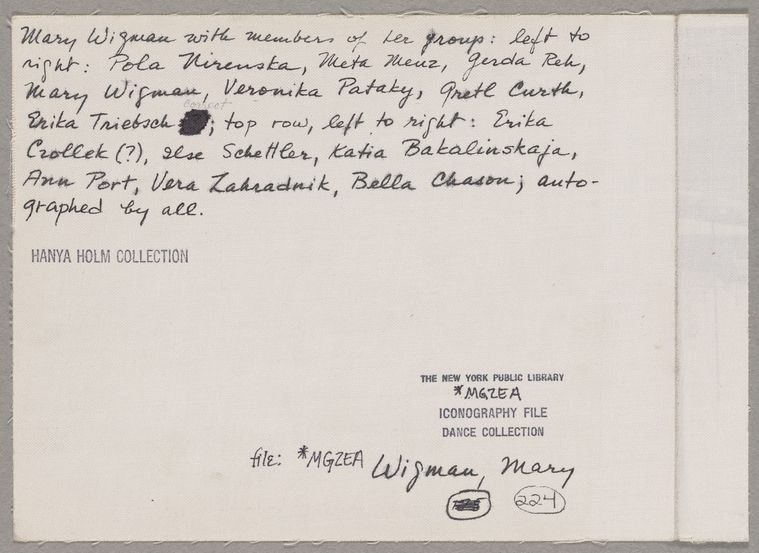 Mary Wigman with members of her group: left to
right: Pola Nirenska, Meta Menz, Gerda Reh,
Mary Wigman, Veronika Pataky, Gretl Curth,
correct
Erika Triebsch ; top row, left to right: Erika
Czollek (?), Ilse Schettler, Katia Bakalinskaja,
Ann Port, Vera Zahradnik, Bella Chason; auto-
graphed by all.
HANYA HOLM COLLECTION
THE NEW YORK PUBLIC LIBRARY
*MGZEA
ICONOGRAPHY FILE
DANCE COLLECTION
file: *MGZEA Wigman, Mary
224